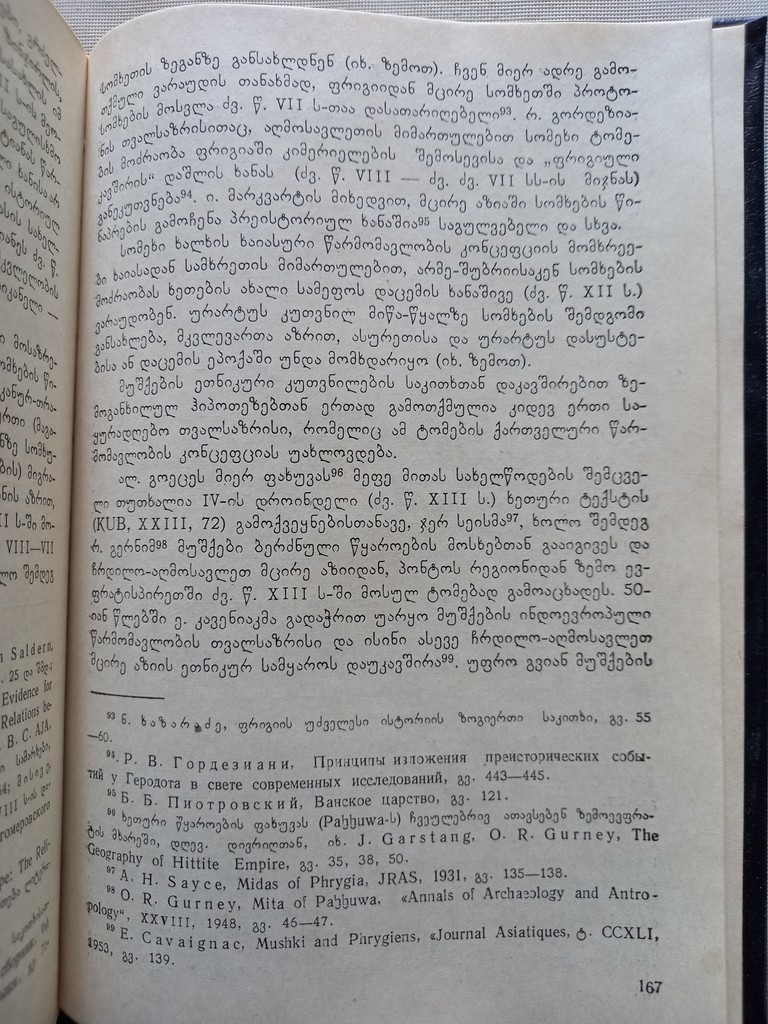 სომხეთის ზეგანზე განსახლდნენ (იხ. ზემოთ). ჩვენ მიერ ადრე გამო-
თქმული ვარაუდის თანახმად, ფრიგიიდან მცირე სომხეთში პროტო-
სომხების მოსვლა ძვ. წ. VII ს-თაა დასათარიღებელი⁹³. რ. გორდეზია-
ნის თვალსაზრისითაც, აღმოსავლეთის მიმართულებით სომეხი ტომე-
ბის მოძრაობა ფრიგიაში კიმერიელების შემოსევისა და „ფრიგიული
კავშირის“ დაშლის ხანას (ძვ. წ. VIII — ძვ. ძვ. VII სს-ის მიჯნას)
განეკუთვნება⁹⁴. ი. მარკვარტის მიხედვით, მცირე აზიაში სომხების წი-
ნაპრების გამოჩენა პრეისტორიულ ხანაშია⁹⁵ საგულვებელი და სხვა.
სომეხი ხალხის ხაიასური წარმომავლობის კონცეფციის მომხრეე-
ბი ხაიასადან სამხრეთის მიმართულებით, არმე-შუბრიისაკენ სომხების
მოძრაობას ხეთების ახალი სამეფოს დაცემის ხანაშივე (ძვ. წ. XII ს.)
ვარაუდობენ. ურარტუს კუთვნილ მიწა-წყალზე სომხების შემდგომი
განსახლება, მკვლევართა აზრით, ასურეთისა და ურარტუს დასუსტე-
ბისა ან დაცემის ეპოქაში უნდა მომხდარიყო (იხ. ზემოთ).
მუშქების ეთნიკური კუთვნილების საკითხთან დაკავშირებით ზე-
მოგანხილულ ჰიპოთეზებთან ერთად გამოთქმულია კიდევ ერთი სა-
ყურადღებო თვალსაზრისი, რომელიც ამ ტომების ქართველური წარ-
მომავლობის კონცეფციას უახლოვდება.
ალ. გოეცეს მიერ ფახუვას⁹⁶ მეფე მითას სახელწოდების შემცვე-
ლი თუთხალია IV-ის დროინდელი (ძვ. წ. XIII ს.) ხეთური ტექსტის
(KUB, XXIII, 72) გამოქვეყნებისთანავე, ჯერ სეისმა⁹⁷, ხოლო შემდეგ
რ. გერნიმ⁹⁸ მუშქები ბერძნული წყაროების მოსხებთან გააიგივეს და
ჩრდილო-აღმოსავლეთ მცირე აზიიდან, პონტოს რეგიონიდან ზემო ევ-
ფრატისპირეთში ძვ. წ. XIII ს-ში მოსულ ტომებად გამოაცხადეს. 50-
იან წლებში ე. კავენიაკმა გადაჭრით უარყო მუშქების ინდოევროპული
წარმომავლობის თვალსაზრისი და ისინი ასევე ჩრდილო-აღმოსავლეთ
მცირე აზიის ეთნიკურ სამყაროს დაუკავშირა⁹⁹. უფრო გვიან მუშქების
⁹³ ნ. ხაზარაძე, ფრიგიის უძველესი ისტორიის ზოგიერთი საკითხი, გვ. 55
—60.
⁹⁴. Р. В. Гордезиани, Принципы изложения преисторических собы-
тий у Геродота в свете современных исследований, გვ. 443—445.
⁹⁵ Б. Б. Пиотровский, Ванское царство, გვ. 121.
⁹⁶ ხეთური წყაროების ფახუვას (Paḫḫuwa-ს) ჩვეულებრივ ათავსებენ ზემოევფრა-
ტის მხარეში, დღევ. დივრიღთან, იხ. J. Garstang, O. R. Gurney, The
Geography of Hittite Empire, გვ. 35, 38, 50.
⁹⁷ A. H. Sayce, Midas of Phrygia, JRAS, 1931, გვ. 135—138.
⁹⁸ O. R. Gurney, Mita of Paḫḫuwa, «Annals of Archaeology and Antro-
pology“, XXVIII, 1948, გვ. 46—47.
⁹⁹ E. Cavaignac, Mushki and Phrygiens, «Journal Asiatiques, ტ. CCXLI,
1953, გვ. 139.
167